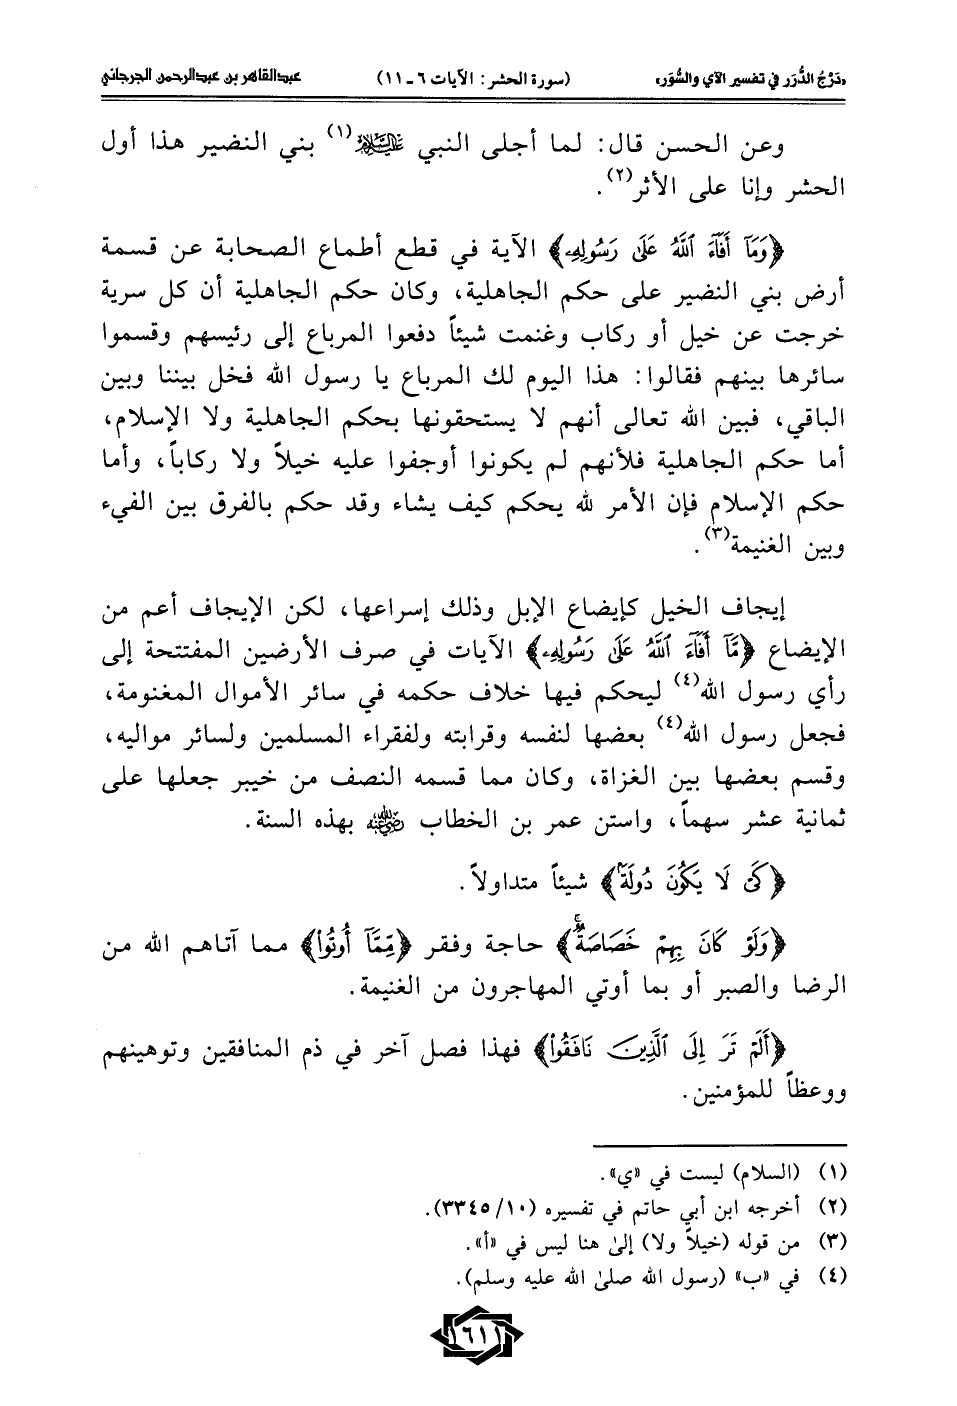 «دَرْجُ الدُّرَر في تفسير الآي والسُّوَر» (سورة الحشر: الآيات ٦ ـ ١١) عبدالقاهر بن عبدالرحمن الجرجاني
وعن الحسن قال: لما أجلى النبي عليه السلام(١) بني النضير هذا أول
الحشر وإنا على الأثر(٢).
﴿وَمَآ أَفَآءَ ٱللَّهُ عَلَىٰ رَسُولِهِۦ﴾ الآية في قطع أطماع الصحابة عن قسمة
أرض بني النضير على حكم الجاهلية، وكان حكم الجاهلية أن كل سرية
خرجت عن خيل أو ركاب وغنمت شيئاً دفعوا المرباع إلى رئيسهم وقسموا
سائرها بينهم فقالوا: هذا اليوم لك المرباع يا رسول الله فخل بيننا وبين
الباقي، فبين الله تعالى أنهم لا يستحقونها بحكم الجاهلية ولا الإسلام،
أما حكم الجاهلية فلأنهم لم يكونوا أوجفوا عليه خيلاً ولا ركاباً، وأما
حكم الإسلام فإن الأمر لله يحكم كيف يشاء وقد حكم بالفرق بين الفيء
وبين الغنيمة(٣).
إيجاف الخيل كإيضاع الإبل وذلك إسراعها، لكن الإيجاف أعم من
الإيضاع ﴿مَّآ أَفَآءَ ٱللَّهُ عَلَىٰ رَسُولِهِۦ﴾ الآيات في صرف الأرضين المفتتحة إلى
رأي رسول الله(٤) ليحكم فيها خلاف حكمه في سائر الأموال المغنومة،
فجعل رسول الله(٤) بعضها لنفسه وقرابته ولفقراء المسلمين ولسائر مواليه،
وقسم بعضها بين الغزاة، وكان مما قسمه النصف من خيبر جعلها على
ثمانية عشر سهماً، واستن عمر بن الخطاب رضي الله عنه بهذه السنة.
﴿كَىْ لَا يَكُونَ دُولَةًۢ﴾ شيئاً متداولاً.
﴿وَلَوْ كَانَ بِهِمْ خَصَاصَةٌۚ﴾ حاجة وفقر ﴿مِّمَّآ أُوتُوا۟﴾ مما آتاهم الله من
الرضا والصبر أو بما أوتي المهاجرون من الغنيمة.
﴿أَلَمْ تَرَ إِلَى ٱلَّذِينَ نَافَقُوا۟﴾ فهذا فصل آخر في ذم المنافقين وتوهينهم
ووعظاً للمؤمنين.
(١) (السلام) ليست في «ي».
(٢) أخرجه ابن أبي حاتم في تفسيره (١٠/٣٣٤٥).
(٣) من قوله (خيلاً ولا) إلىٰ هنا ليس في «أ».
(٤) في «ب» (رسول الله صلىٰ الله عليه وسلم).
١٦١١